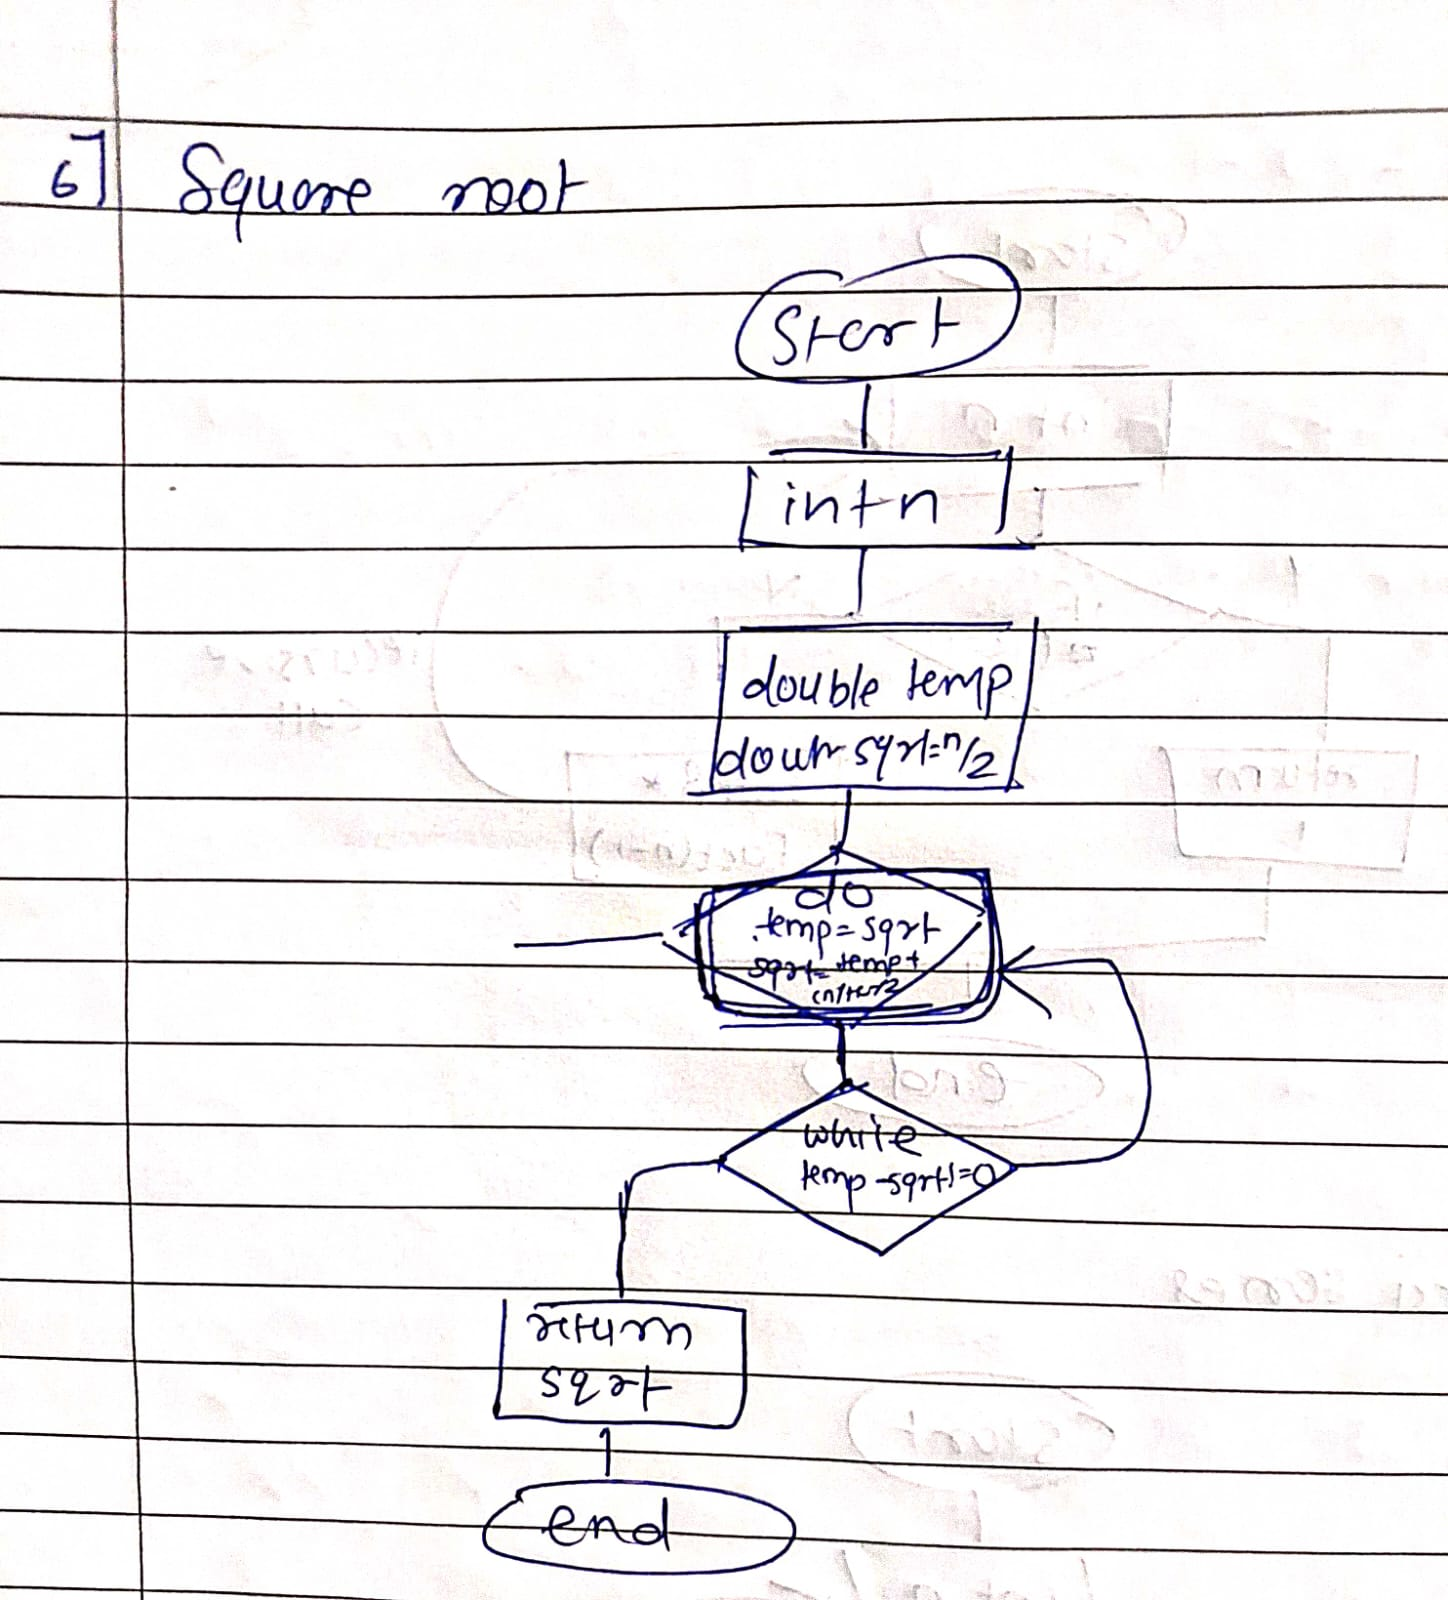 6] Square root
Start
int n
double temp
doub sqrt=n/2
do
temp = sqrt
sqrt= temp+
(n/te)/2
while
temp -sqrt!=0
return
sqrt
end